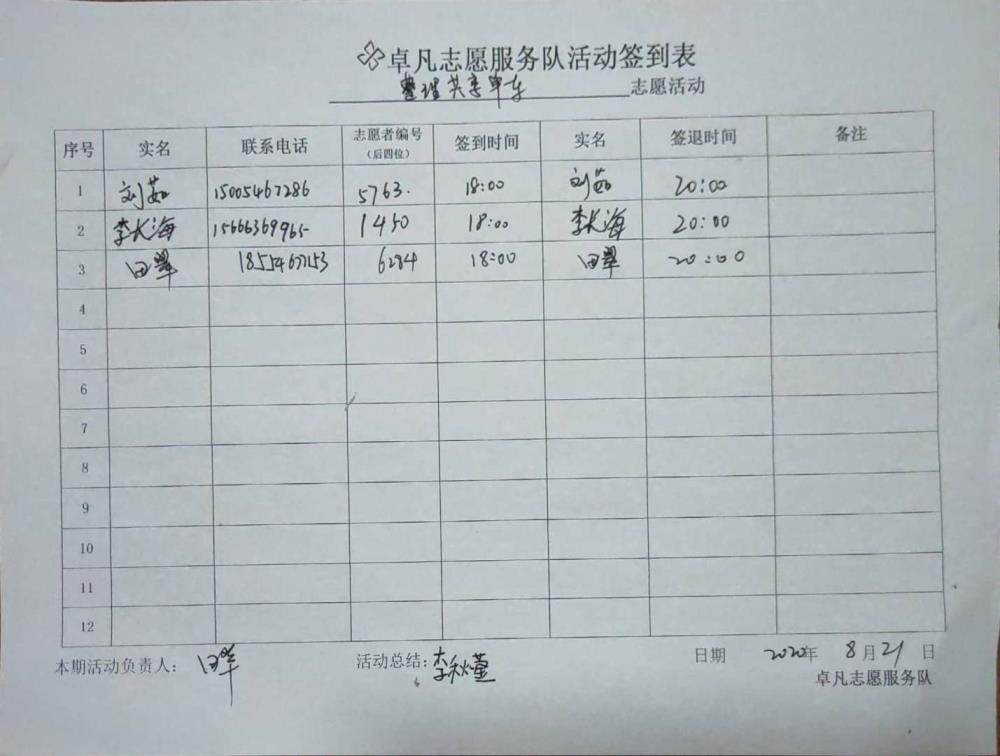 卓凡志愿服务队活动签到表
整理共享单车 志愿活动
序号 实名 联系电话 志愿者编号 (后四位) 签到时间 实名 签退时间 备注
1 刘茹 15005467286 5763. 18:00 刘茹 20:00
2 李长海 15666369965 1450 18:00 李长海 20:00
3 田翠 18554671153 6284 18:00 田翠 20:00
4
5
6
7
8
9
10
11
12
本期活动负责人： 活动总结： 日期 2020年 8月21日
卓凡志愿服务队